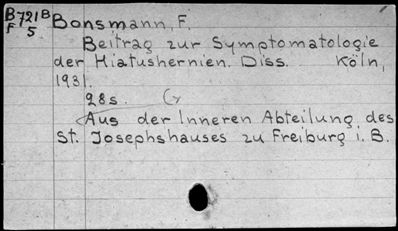 B721B Bonsmann, F.
F5
Beitrag zur Symptomatologie
der Hiatushernien. Diss. Köln,
1931.
28s.
Aus der Inneren Abteilung des
St. Josephshauses zu Freiburg i. B.